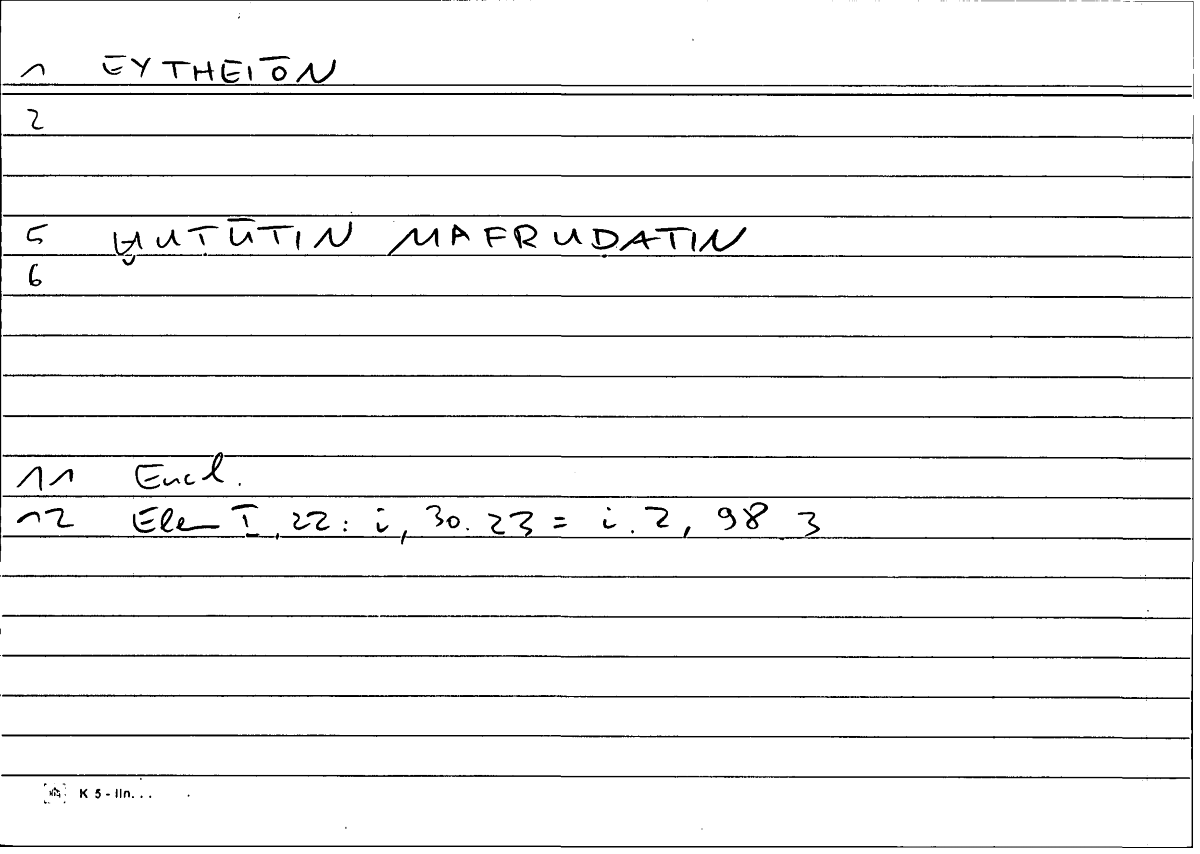 1 EYTHEIŌN
2
5 ḪUṬŪṬIN MAFRUḌATIN
6
11 Eucl.
12 Elem I, 22: i, 30. 23 = i. 2, 98 3
K 5 - lin. . .